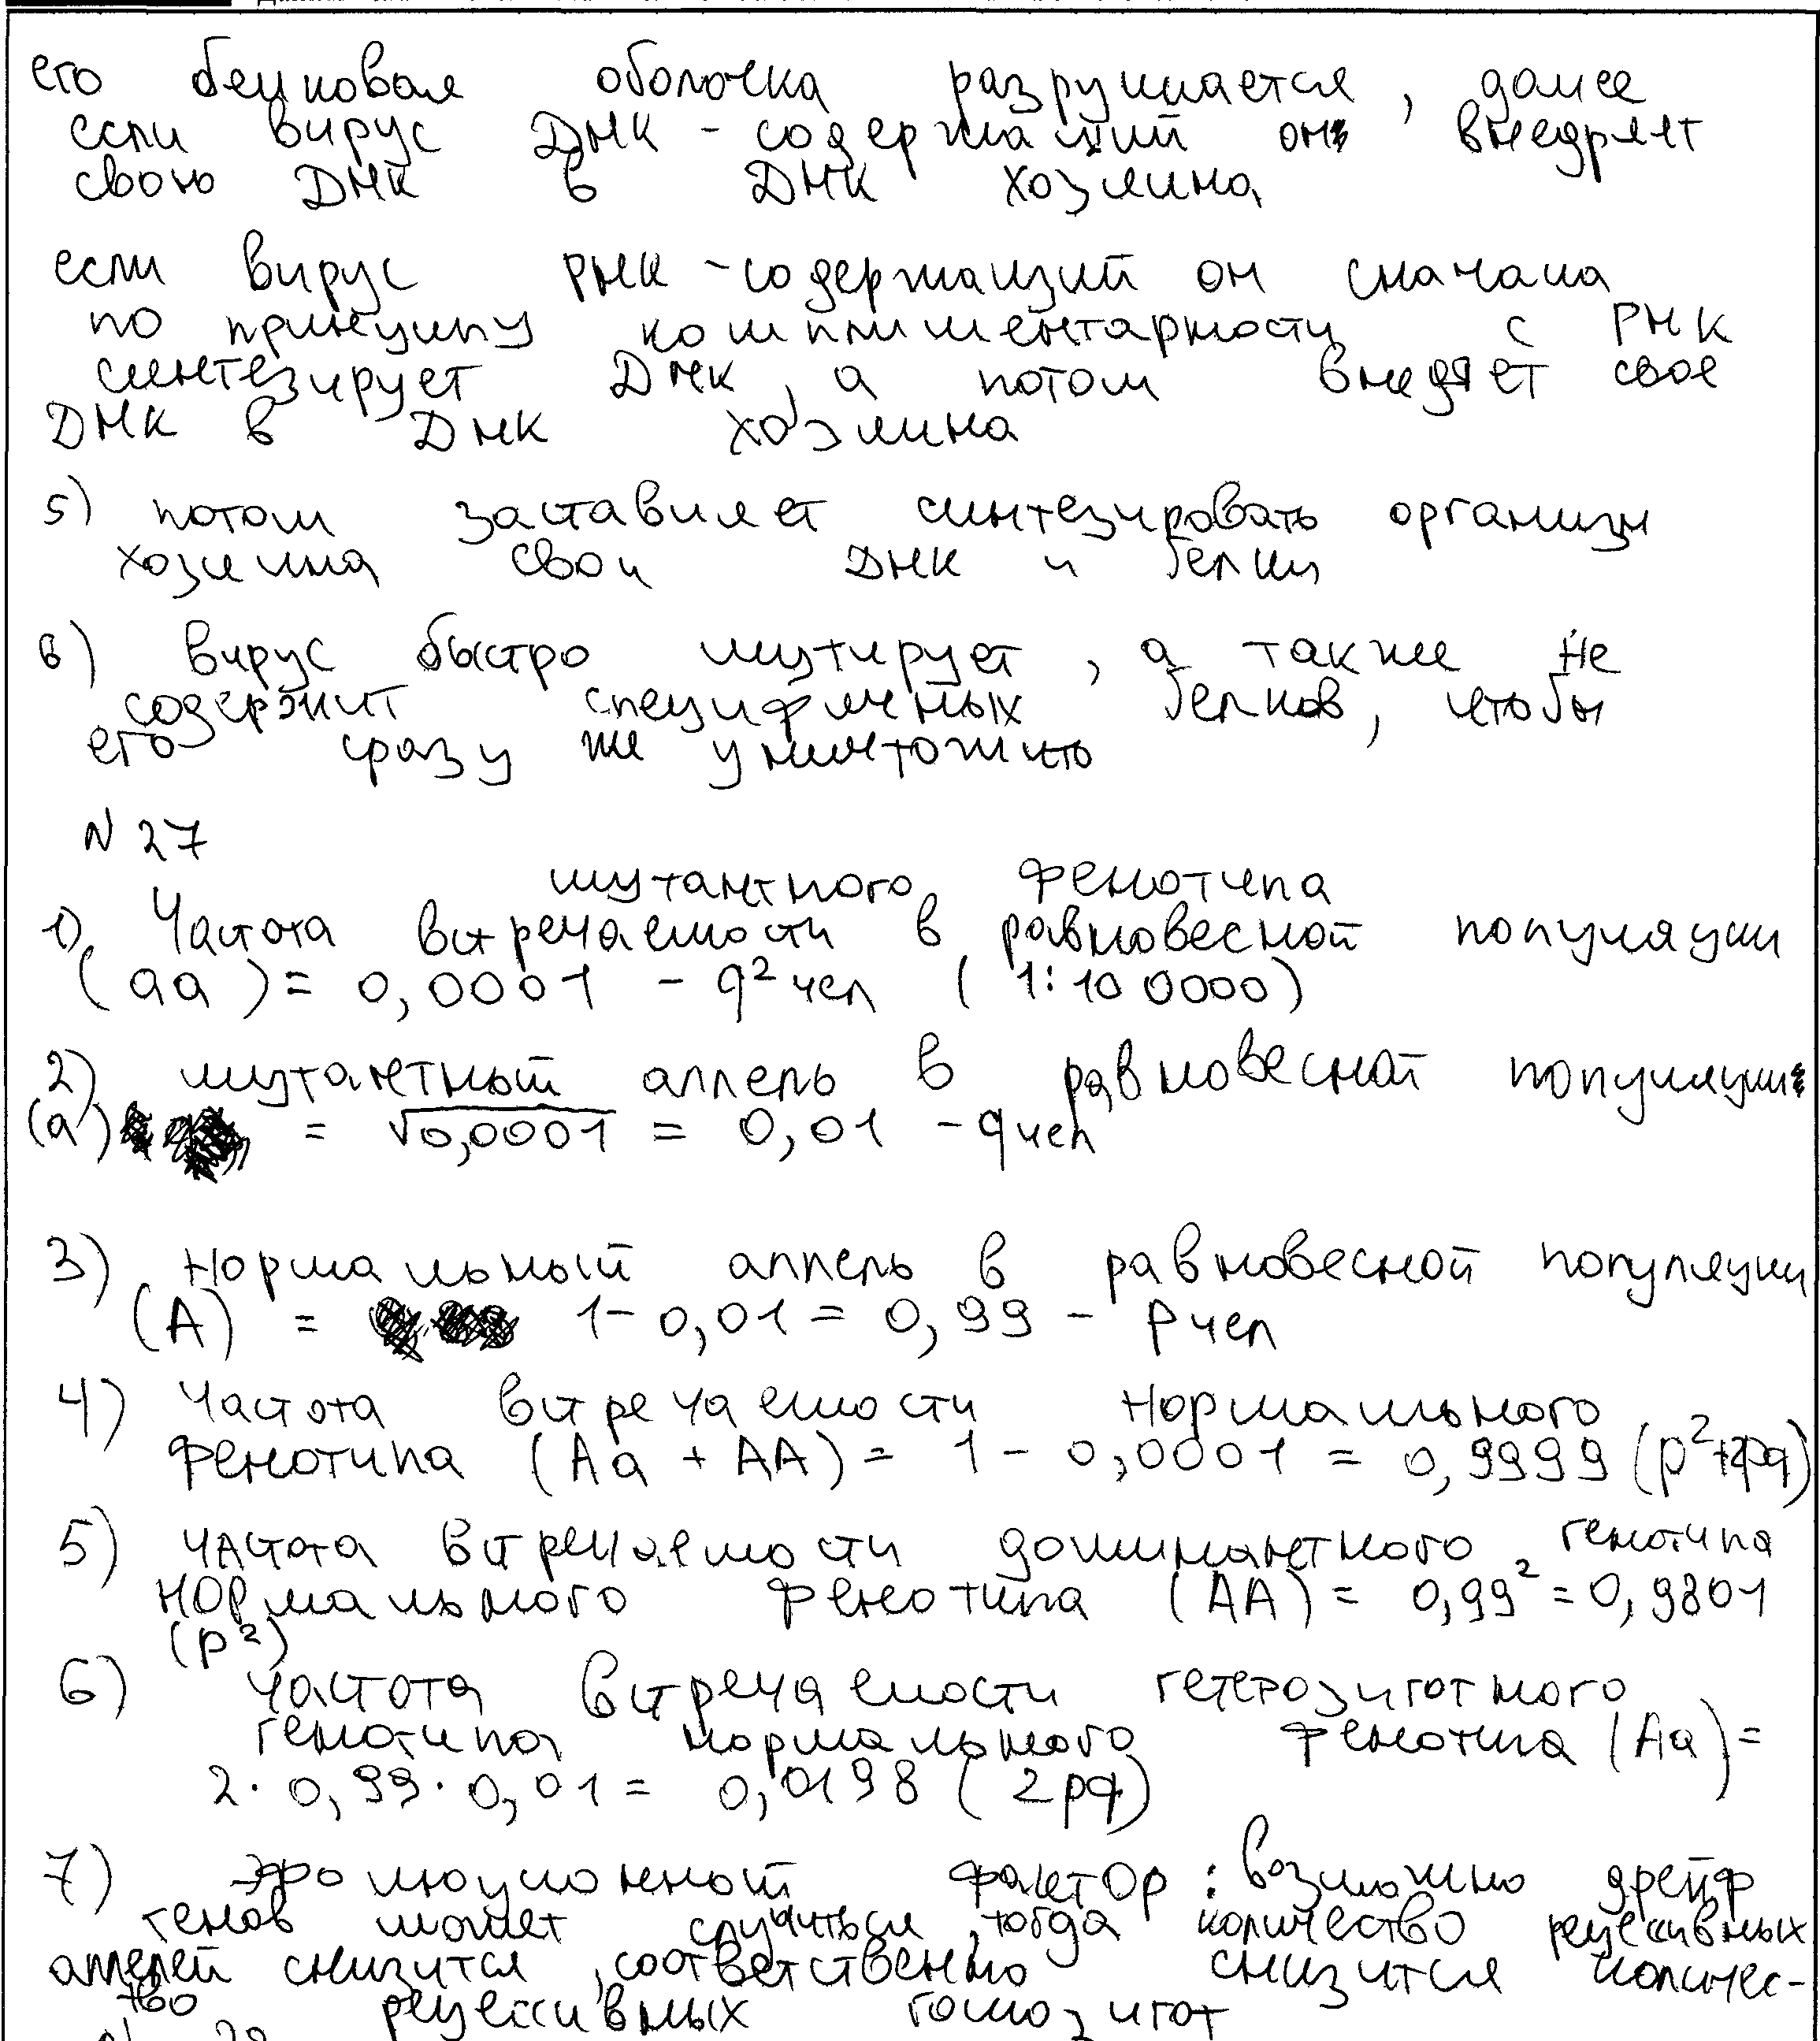 его белковая оболочка разрушается, далее
если вирус ДНК-содержащий он внедряет
свою ДНК в ДНК хозяина
если вирус РНК-содержащий он сначала
по принципу комплиментарности с РНК
синтезирует ДНК, а потом внедяет свое
ДНК в ДНК хозяина
5) потом заставляет синтезировать организм
хозяина свои ДНК и белки
6) вирус быстро мутирует, а также не
содержит специфичных белков, чтобы
его сразу же уничтожить
N 27
мутантного фенотипа
1) Частота встречаемости в равновесной популяции
(aa) = 0,0001 - q² чел (1:10 0000)
2) мутантный аллель в равновесной популяции
(a) = √0,0001 = 0,01 - q чел
3) Нормальный аллель в равновесной популяции
(A) = 1-0,01 = 0,99 - p чел
4) Частота встречаемости нормального
фенотипа (Aa + AA) = 1 - 0,0001 = 0,9999 (p²+2pq)
5) частота встречаемости доминантного генотипа
нормального фенотипа (AA) = 0,99² = 0,9801
(p²)
6) частота встречаемости гетерозиготного
генотипа нормального фенотипа (Aa) =
2·0,99·0,01 = 0,0198 (2pq)
7) Эволюционный фактор: возможно дрейф
генов может случиться, тогда количество рецессивных
аллелей снизится, соответственно снизится количес-
тво рецессивных гомозигот